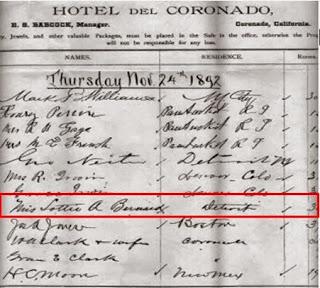 HOTEL DEL CORONADO,
E. S. BABCOCK, Manager. Coronado, California.
y, Jewels, and other valuable Packages, must be placed in the Safe in the office, otherwise the Pro
will not be responsible for any loss.
NAMES. RESIDENCE. Rooms
Thursday Nov. 24th 1892
Mark P. Williams City
Pawtucket R I
Mrs R A Gage Pawtucket R I
Mrs M E French Pawtucket R I
Geo Detroit M
Mrs R. Irwin Denver Colo
Irwin Denver Colo
Miss Lottie A Bernard Detroit
Jones Boston
Clark & wife
Clark
H C Moon New Mex